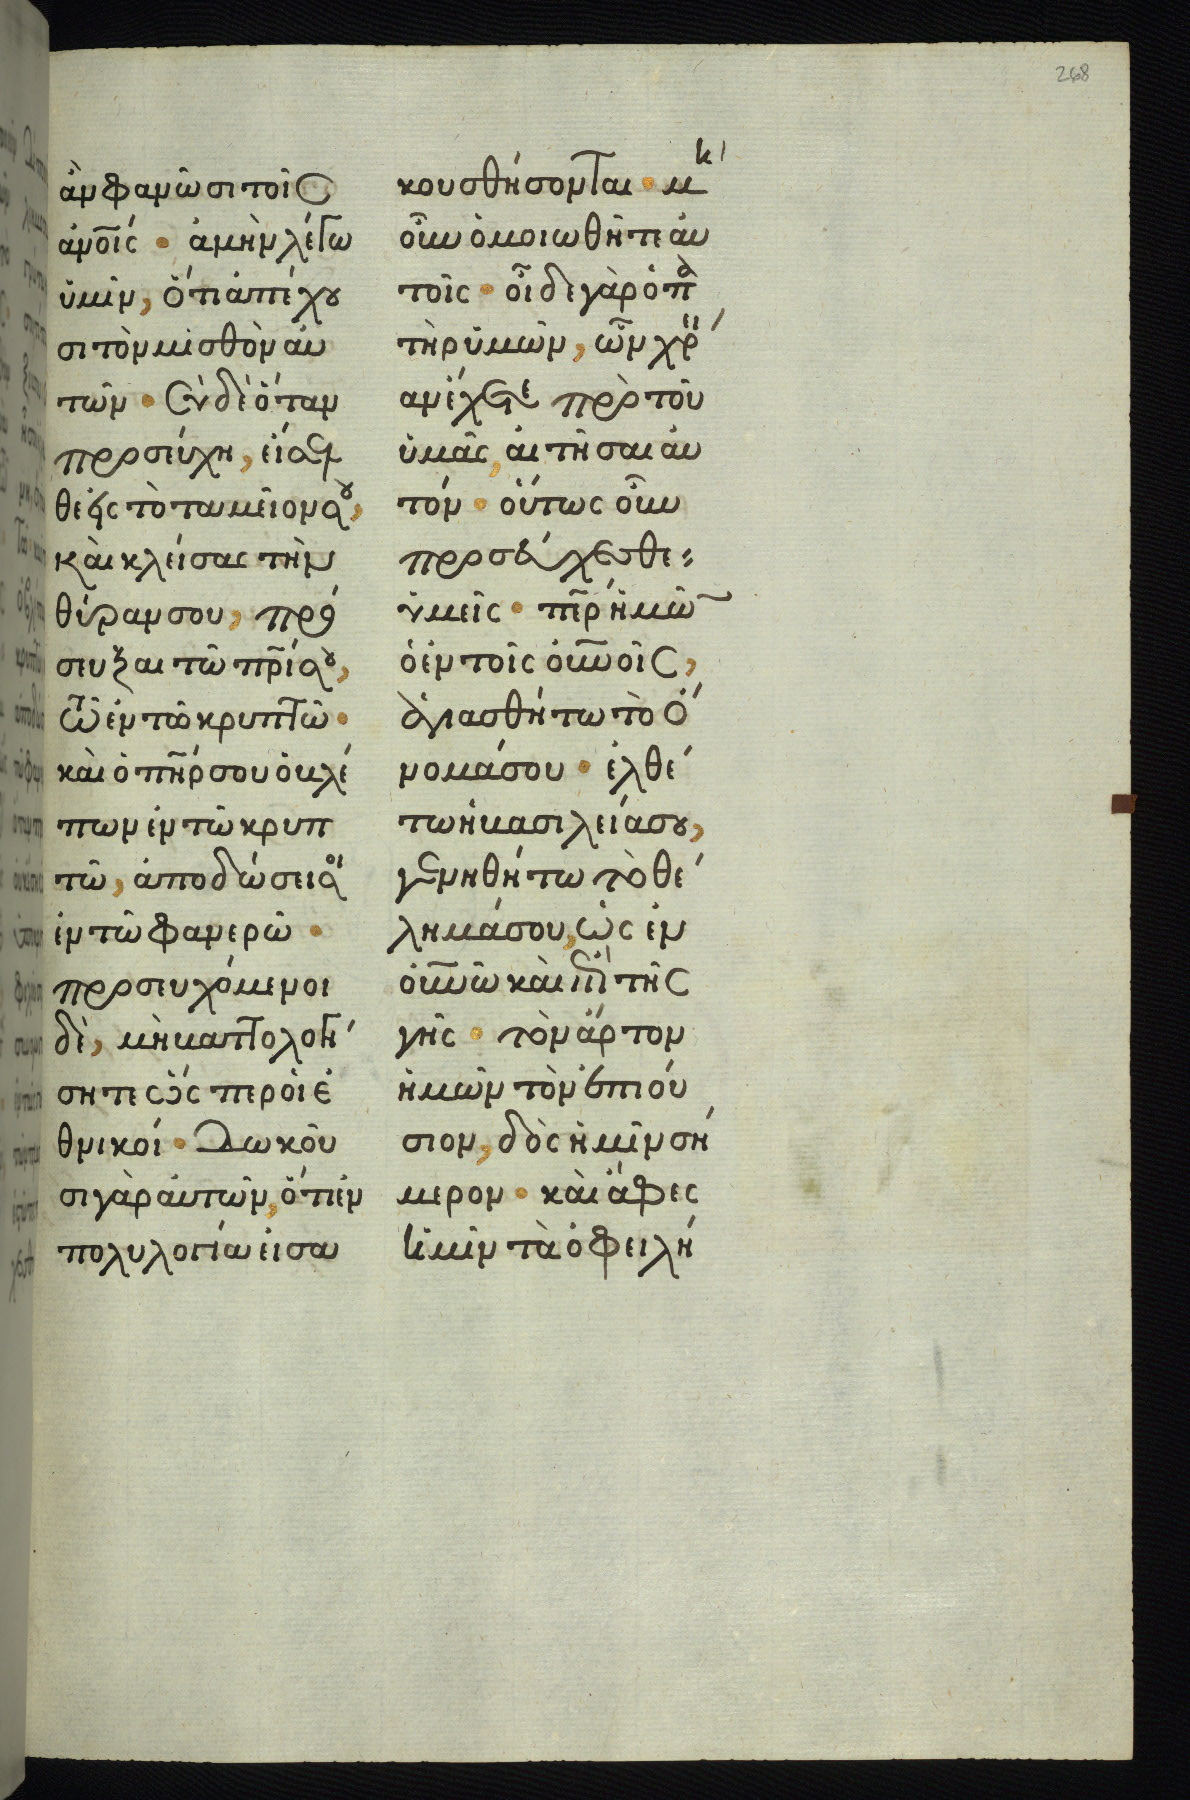 268
ἂν φανῶσι τοῖς
ἀνοῖς · ἀμὴν λέγω
ὑμῖν, ὅτι ἀπέχου
σι τὸν μισθὸν αὐ
τῶν · Σὺ δὲ ὅταν
προσεύχη, εἴσελ
θε εἰς τὸ ταμεῖον σου,
καὶ κλείσας τὴν
θύραν σου, πρόσ
σευξαι τῶ πρί σου,
τῶ ἐν τῶ κρυπτῶ ·
καὶ ὁ πήρ σου ὁ βλέ
πων ἐν τῶ κρυπ
τῶ, ἀποδώσει σοί
ἐν τῶ φανερῶ ·
προσευχόμενοι
δὲ, μὴ βαττολογή
σητε ὥσπερ οἱ ἐ
θνικοί · Δοκοῦ
σι γὰρ αὐτῶν, ὅτι ἐν
πολυλογία εἰσα
κουσθήσονται · μὴ
οὖν ὁμοιωθῆτε αὐ
τοῖς · οἶδε γὰρ ὁ π
τὴρ ὑμῶν, ὧν χρεί
αν ἔχετε πρὸ τοῦ
ὑμᾶς, αἰτῆσαι αὐ
τόν · οὕτως οὖν
προσεύχεσθε
ὑμεῖς · περ ἡμῶν
ὁ ἐν τοῖς οὐνοῖς,
ἁγιασθήτω τὸ ὄ
νομά σου · ἐλθέ
τω ἡ βασιλεία σου,
γενηθήτω τὸ θέ
λημά σου, ὡς ἐν
οὐνῶ καὶ ἐπὶ τῆς
γῆς · τὸν ἄρτον
ἡμῶν τὸν ἐπιού
σιον, δὸς ἡμῖν σή
μερον · καὶ ἄφες
ἡμῖν τὰ ὀφειλή